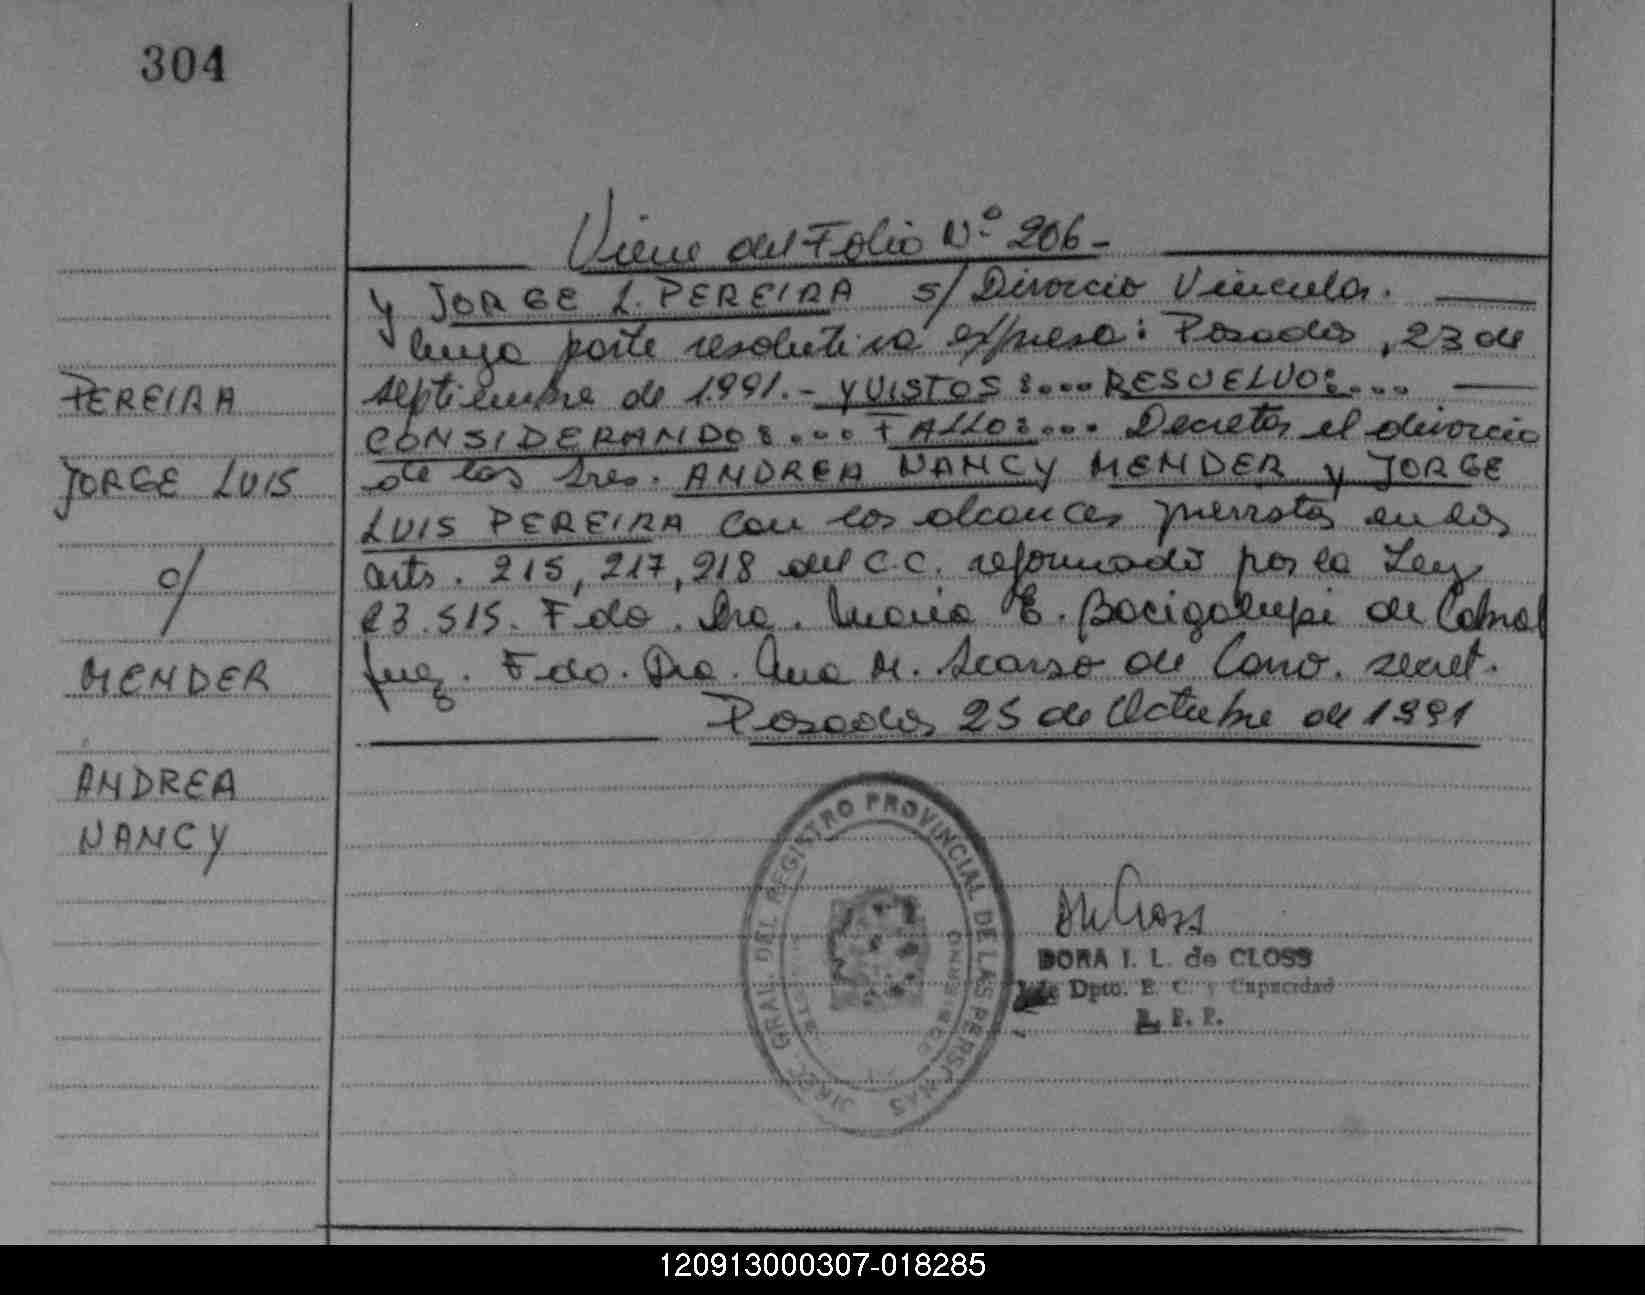 304
Viene del Folio Nº 206-
y JORGE L. PEREIRA s/ Divorcio Vincular.
Cuya parte resolutiva expresa: Posadas, 23 de
septiembre de 1.991.- Y VISTOS:.... RESUELVO:...
CONSIDERANDO:.... FALLO:.... Decretar el divorcio
de los Sres. ANDREA NANCY MENDER y JORGE
LUIS PEREIRA con los alcances previstos en los
arts. 215, 217, 218 del C.C. reformado por la Ley
23.515. Fdo. Dra. Maria E. Bacigalupi de Cabral
Juez. Fdo. Dra. Ana M. de Cano. secret.
Posadas, 25 de Octubre de 1991
PEREIRA
JORGE LUIS
c/
MENDER
ANDREA
NANCY
DIREC. GRAL. DEL REGISTRO PROVINCIAL DE LAS PERSONAS
DORA I. L. de CLOSS
Dpto. E. C. y Capacidad
R. P. P.
120913000307-018285